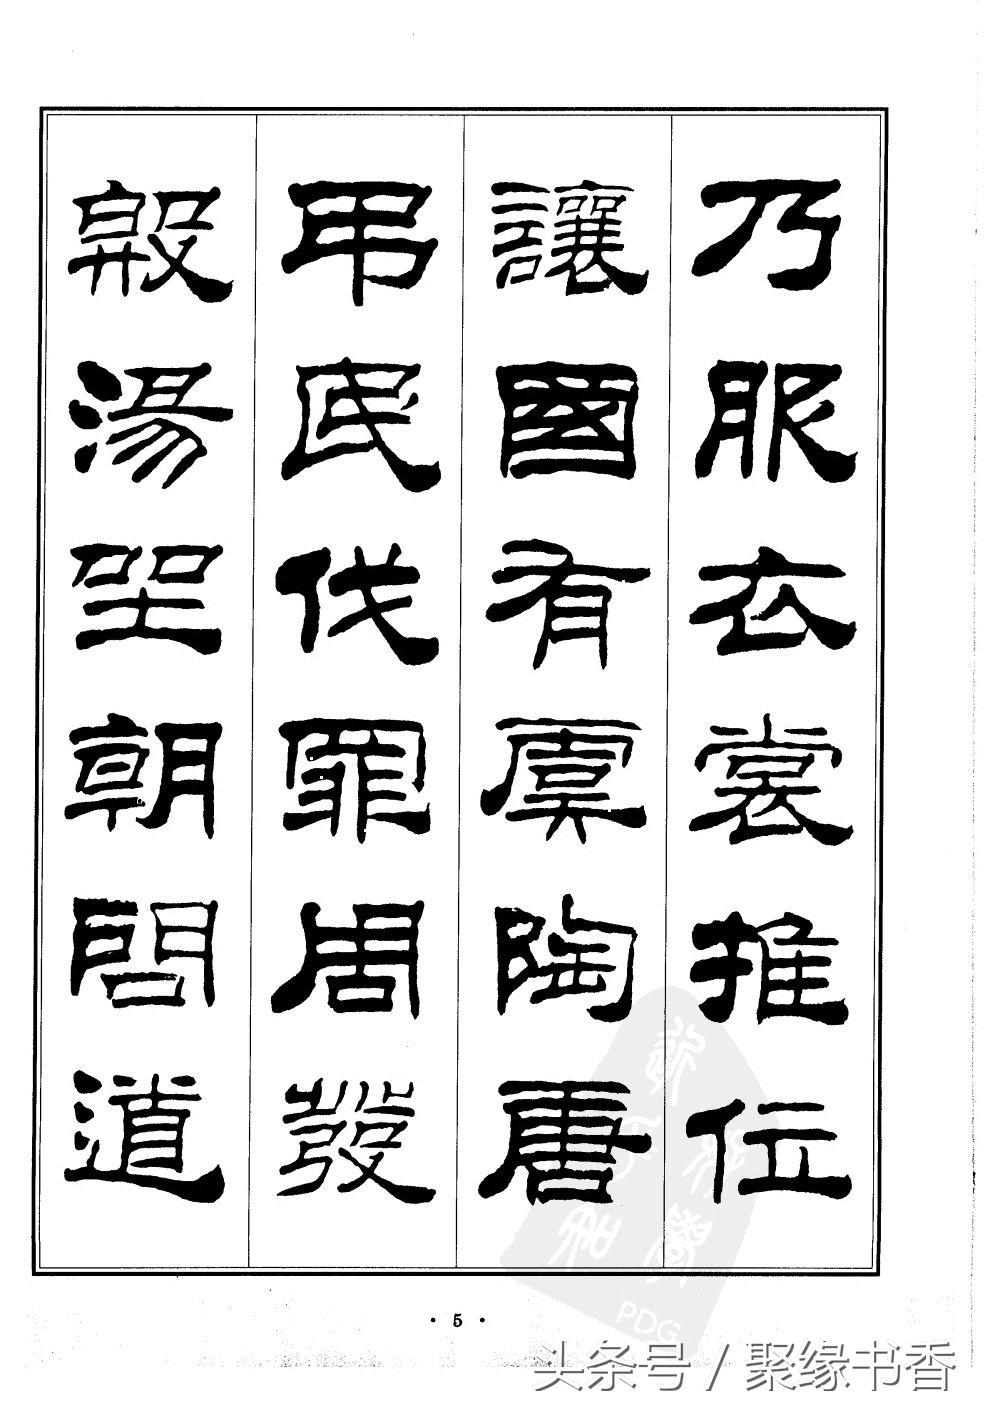 乃服衣裳推位
讓國有虞陶唐
弔民伐罪周發
殷湯坐朝問道
· 5 ·
PDG
头条号 / 聚缘书香